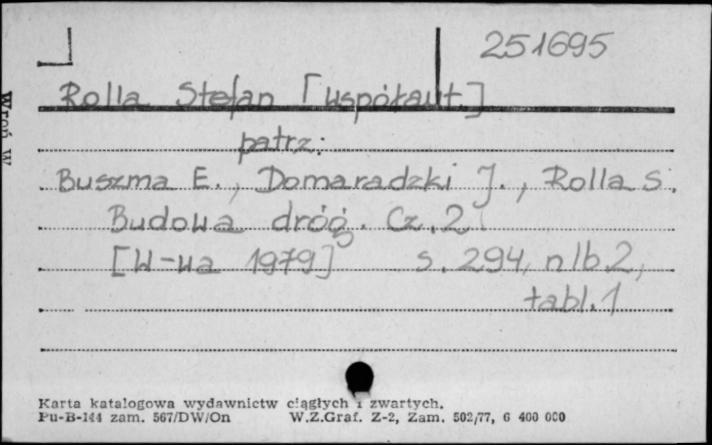 251695
Rolla Stefan [współaut.]
patrz:
Buszma E., Domaradzki J., Rolla S.
Budowa dróg. Cz. 2
[W-wa 1979] s. 294, nlb 2,
tabl. 1
Karta katalogowa wydawnictw ciągłych i zwartych.
Pu-B-144 zam. 567/DW/On W.Z.Graf. Z-2, Zam. 502/77, 6 400 000